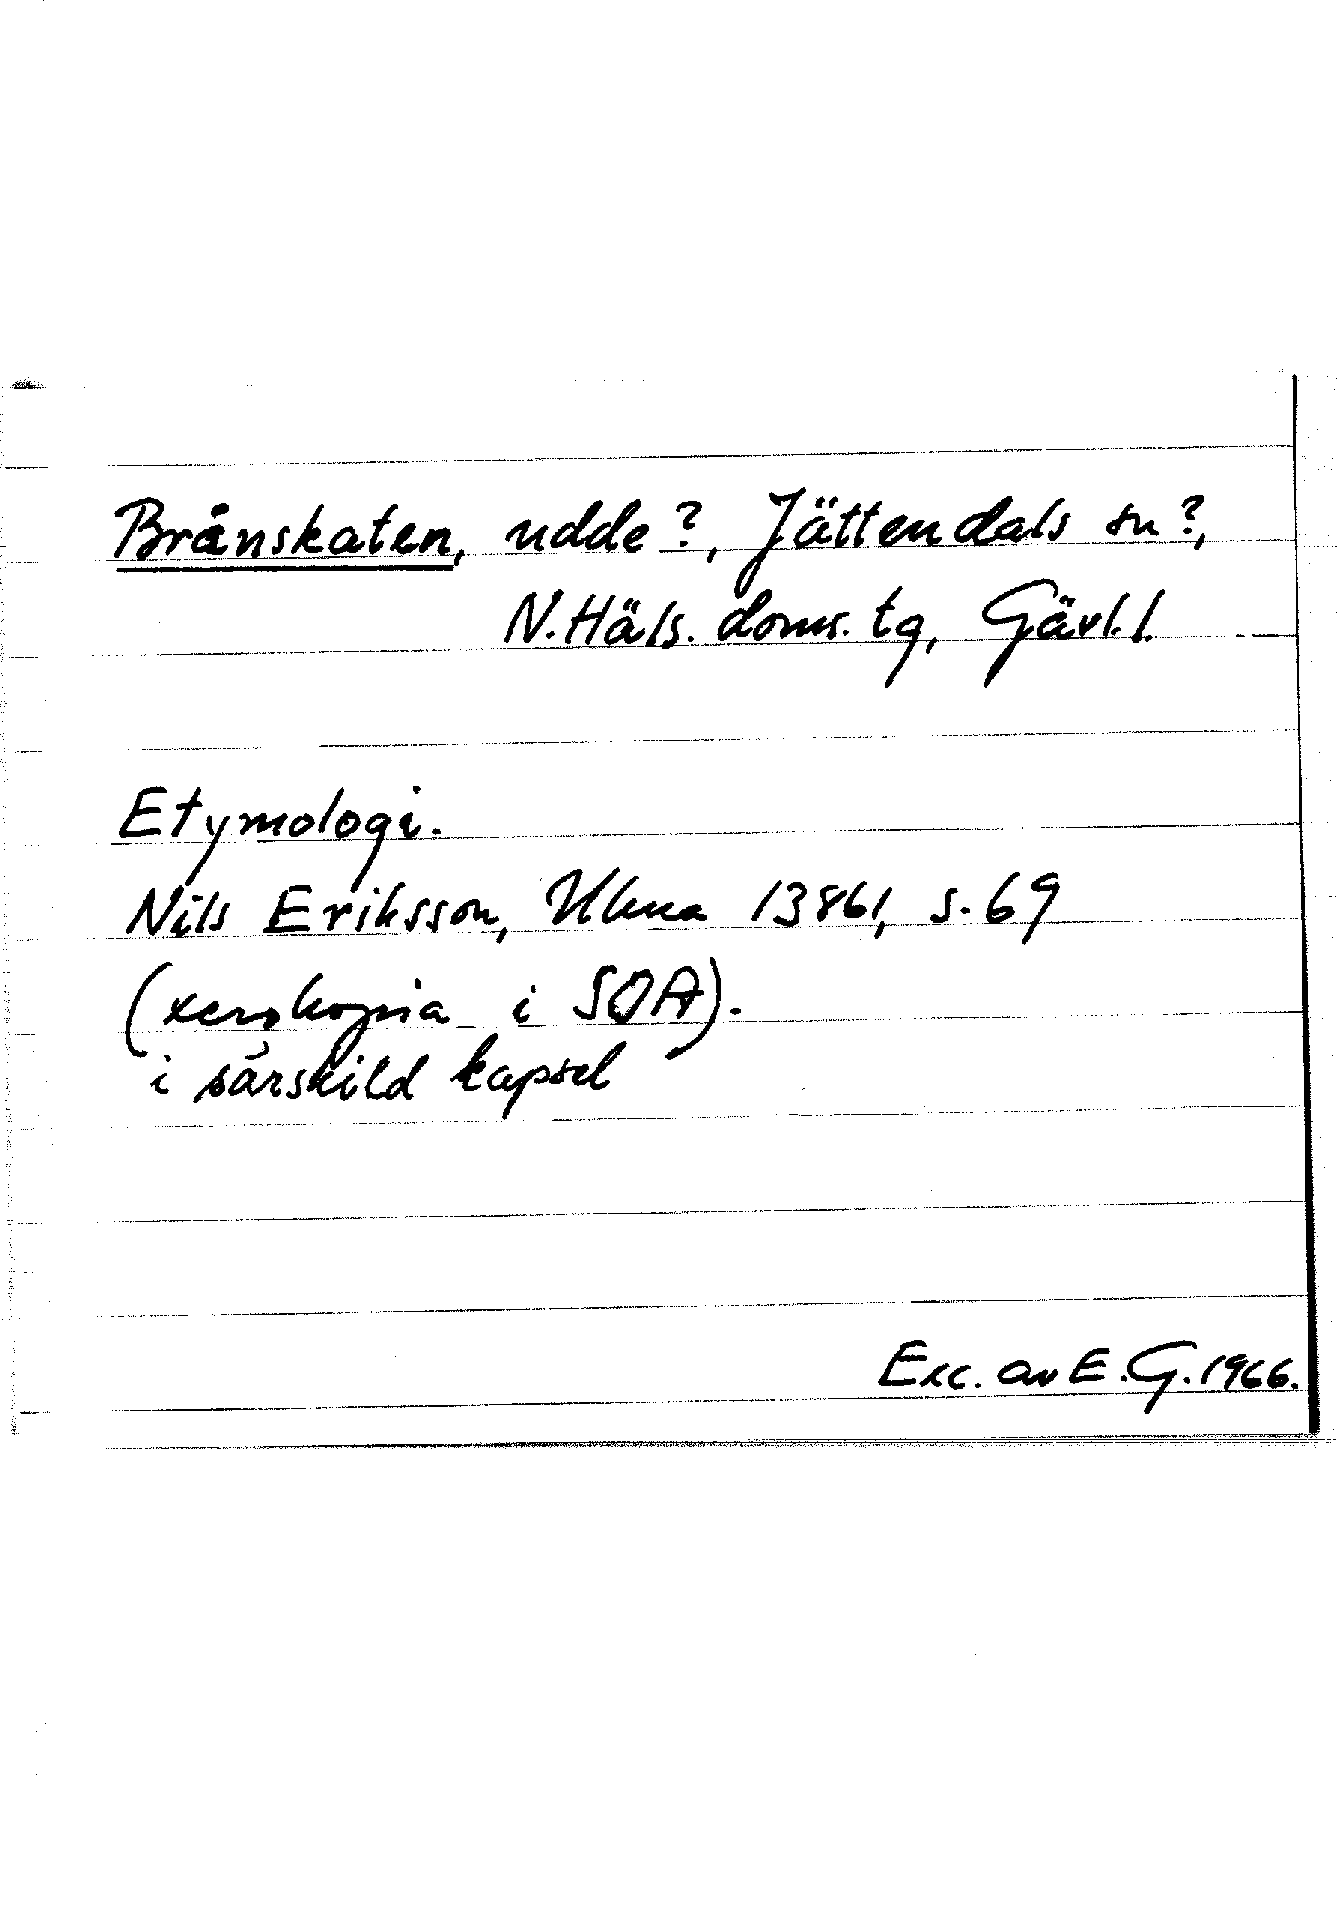 Brånskaten, udde?, Jättendals sn?,
N. Häls. doms. tg, Gävl. l.
Etymologi.
Nils Eriksson, Ulma 13861, s. 69
(xerokopia i SOA).
i särskild kapsel
Exc. av E.G. 1966.